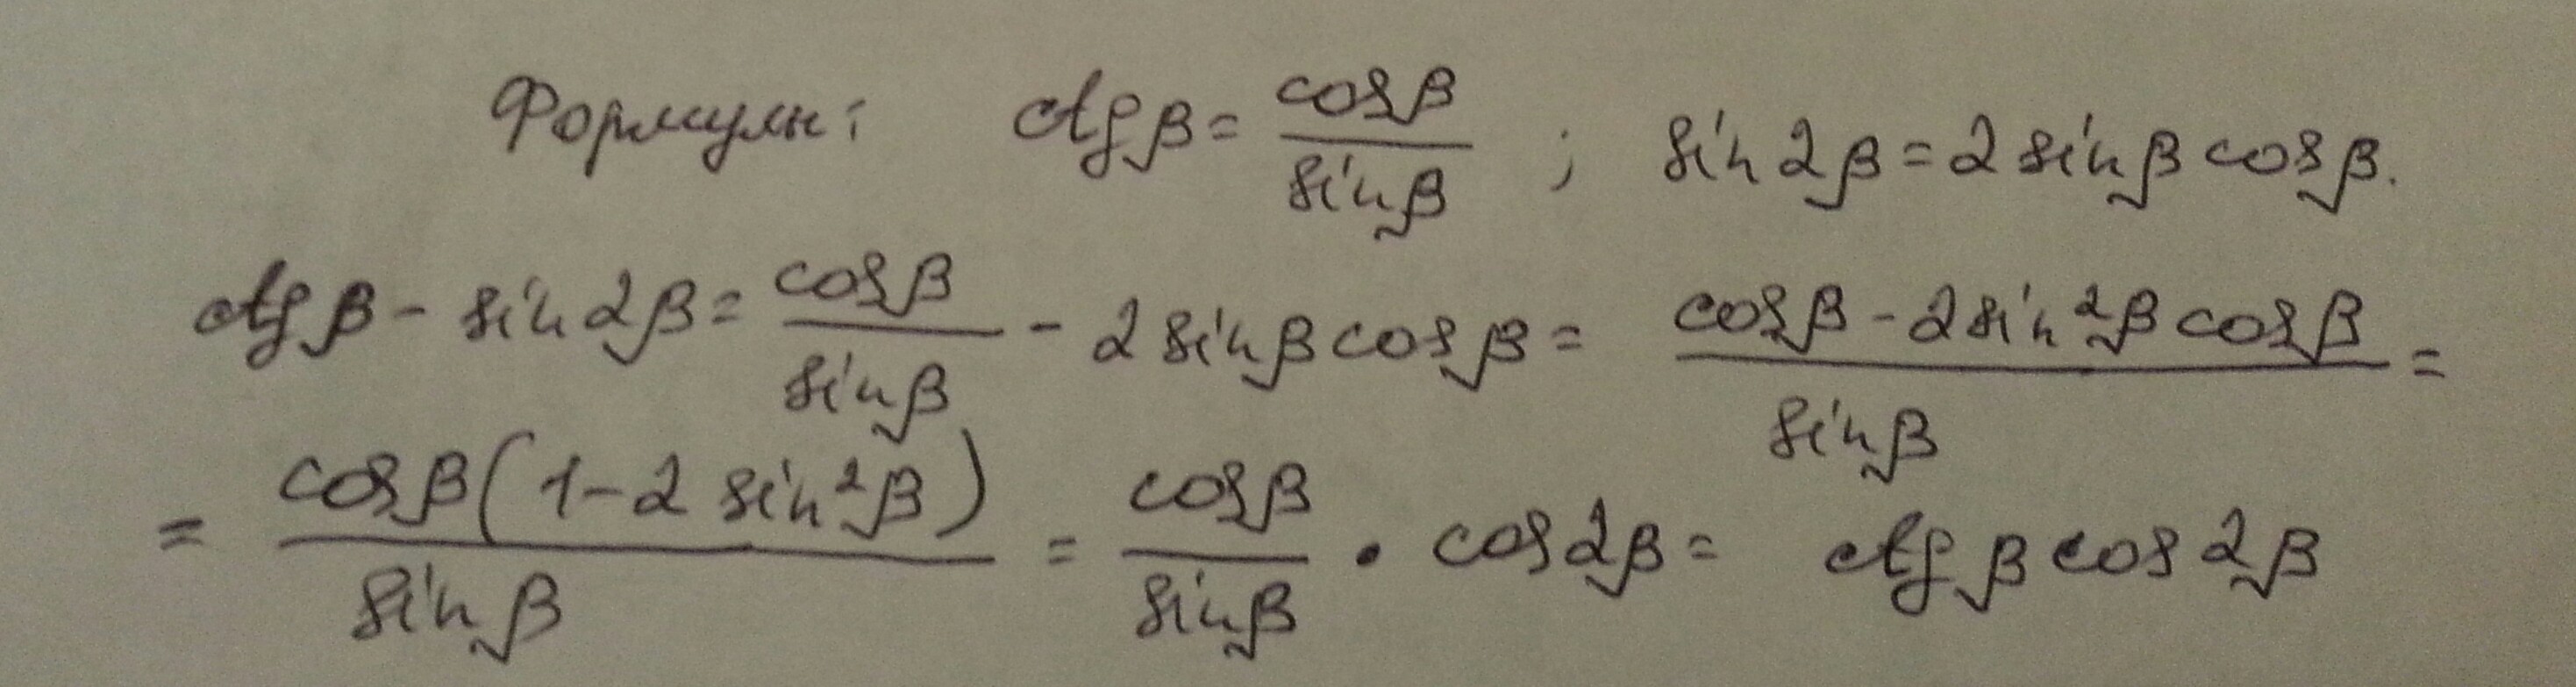 Формулы: ctg β = cos β / sin β ; sin 2β = 2 sin β cos β.
ctg β - sin 2β = cos β / sin β - 2 sin β cos β = (cos β - 2 sin² β cos β) / sin β =
= cos β (1 - 2 sin² β) / sin β = cos β / sin β · cos 2β = ctg β cos 2β